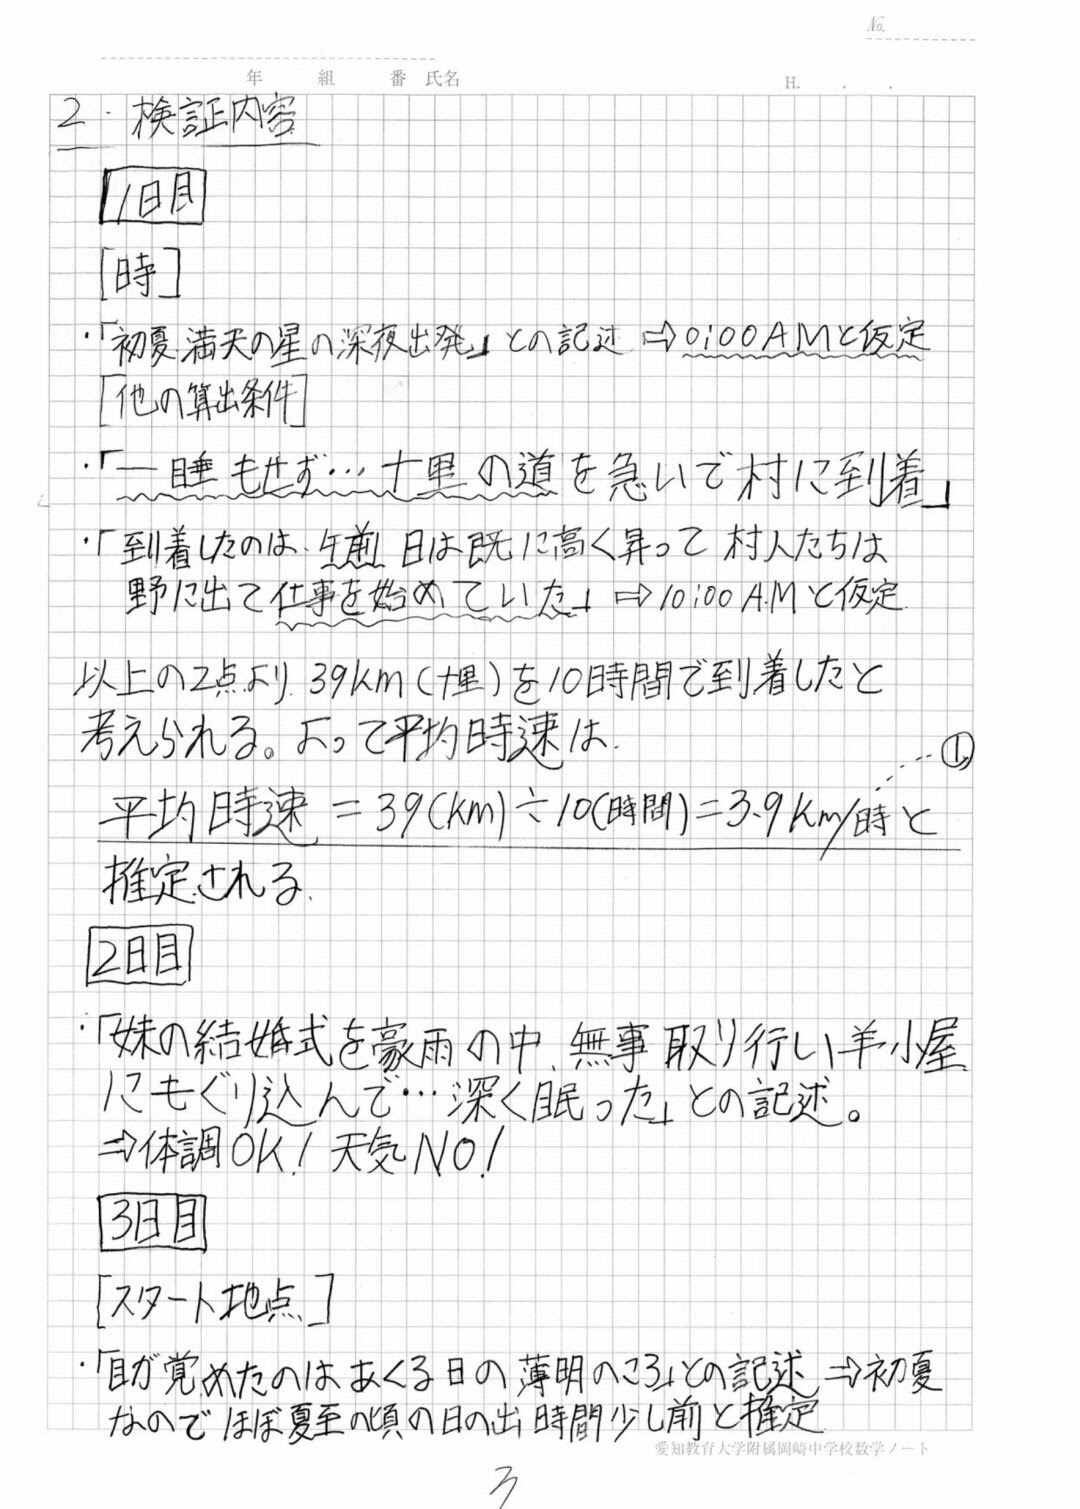 No.
年 組 番 氏名 H. . .
2. 検証内容
1日目
[時]
・「初夏満天の星の深夜出発」との記述 ⇨0:00AMと仮定
[他の算出条件]
・「一睡もせず…十里の道を急いで村に到着」
・「到着したのは、午前 日は既に高く昇って 村人たちは
野に出て仕事を始めていた」⇨10:00A.Mと仮定
以上の2点より 39km(十里)を10時間で到着したと
考えられる。よって平均時速は
①
平均時速 = 39(km)÷10(時間)=3.9km/時と
推定される.
2日目
・「妹の結婚式を豪雨の中、無事取り行い羊小屋
にもぐり込んで…深く眠った」との記述。
⇨体調OK! 天気NO!
3日目
[スタート地点]
・「目が覚めたのはあくる日の薄明のころ」との記述 ⇨初夏
なのでほぼ夏至の頃の日の出時間少し前と推定
愛知教育大学附属岡崎中学校数学ノート
3